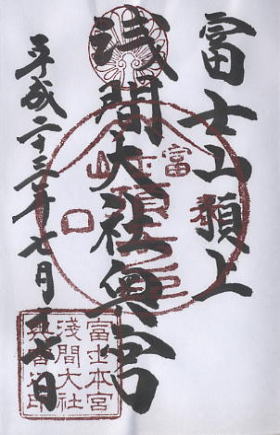 富士山頂上
浅間大社奥宮
平成二十三年七月十七日
富士山
表口
富士本宮
浅間大社
奥宮之印